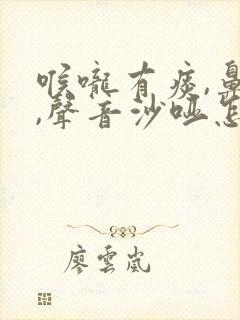 喉嚨有痰,鼻
,聲音沙啞怎
廖雲嵐